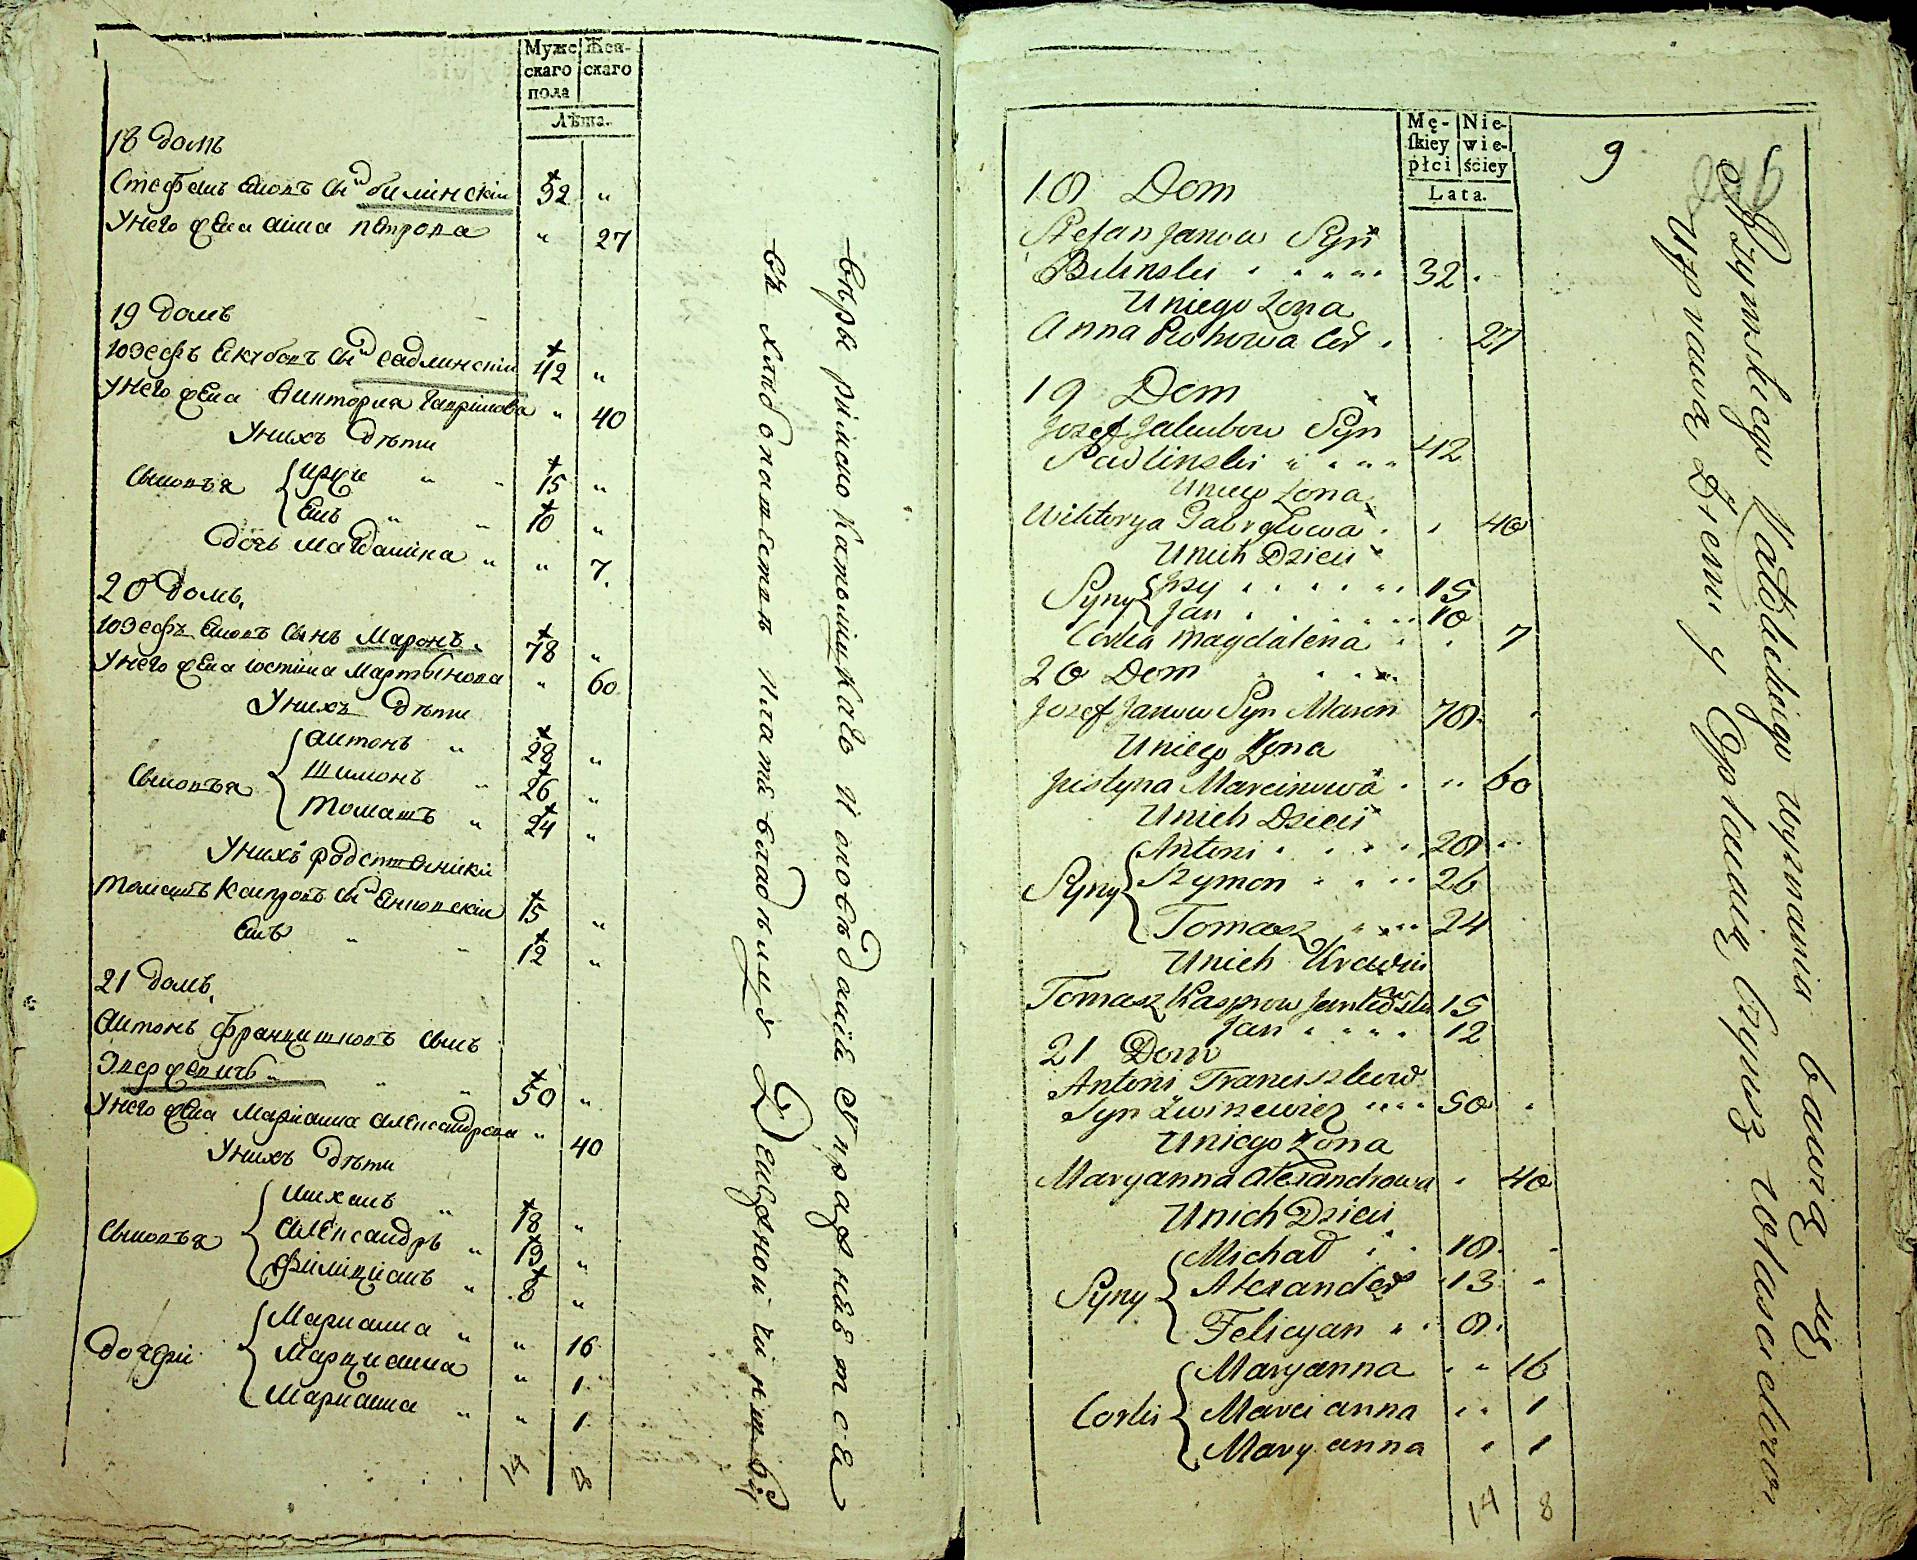 Муже Жен-
скаго скаго
пола
Лѣта.
18 домъ
Стефанъ Яновъ Сынъ билинскіи 32 „
Унего жена анна петрова „ 27
19 домъ
Юзефъ Якубовъ Сынъ садлинскіи 42 „
Унего жена Виктория Гаврилова „ 40
Унихъ дѣти
Сыновъя иржи „ „ 15 „
Янъ „ „ 10 „
дочь Магдалина „ „ 7.
20 домъ.
Юзефъ Яновъ Сынъ Маронъ „ 78 „
Унего жена юстина Мартынова „ 60
Унихъ дѣти
Сыновъя антонъ „ 28 „
Шимонъ „ 26 „
томашъ „ 24 „
Унихъ родственики
томашъ Каспровъ Сынъ Янковскіи 15 „
Янъ „ „ 12 „
21 домъ.
антонъ францишковъ сынъ
„ „ 50 „
Унего жена Марианна александрова „ 40
Унихъ дѣти
Сыновъя михалъ „ 18 „
александръ „ 13 „
филициянъ „ 8 „
дочери Марианна „ „ 16
Марцианна „ 1
Марианна „ „ 1
14 8
вѣры римско католицкаго исповѣданія упражняется
въ хлѣбопашествѣ платитъ владѣльцу денежной чиншъ
Mę- Nie-
skiey wie-
płci ściey
Lata.
9
18 Dom
Stefan Janow Syn
Bilinski 32
Uniego Zona
Anna Piotrowa Cor 27
19 Dom
Jozef Jakubow Syn
Sadlinski 42
Uniego Zona
Wiktorya Gabryelowa 40
Unich Dzieci
Syny Jrzy 15
Jan 10
Corka Magdalena 7
20 Dom
Jozef Janow Syn Maron 78
Uniego Zona
Justyna Marcinowa 60
Unich Dzieci
Syny Antoni 28
Szymon 26
Tomasz 24
Unich Krewni
Tomasz Kasprow Jankowski 15
Jan 12
21 Dom
Antoni Franciszkow
Syn 50
Uniego Zona
Maryanna Alexandrowa 40
Unich Dzieci
Syny Michał 18
Alexander 13
Felicyan 8
Corki Maryanna 16
Marcianna 1
Maryanna 1
14 8
Rzymskiego Katolickiego wyznania bawią się
Uprawą Ziemi y Opłacaią Czynsz